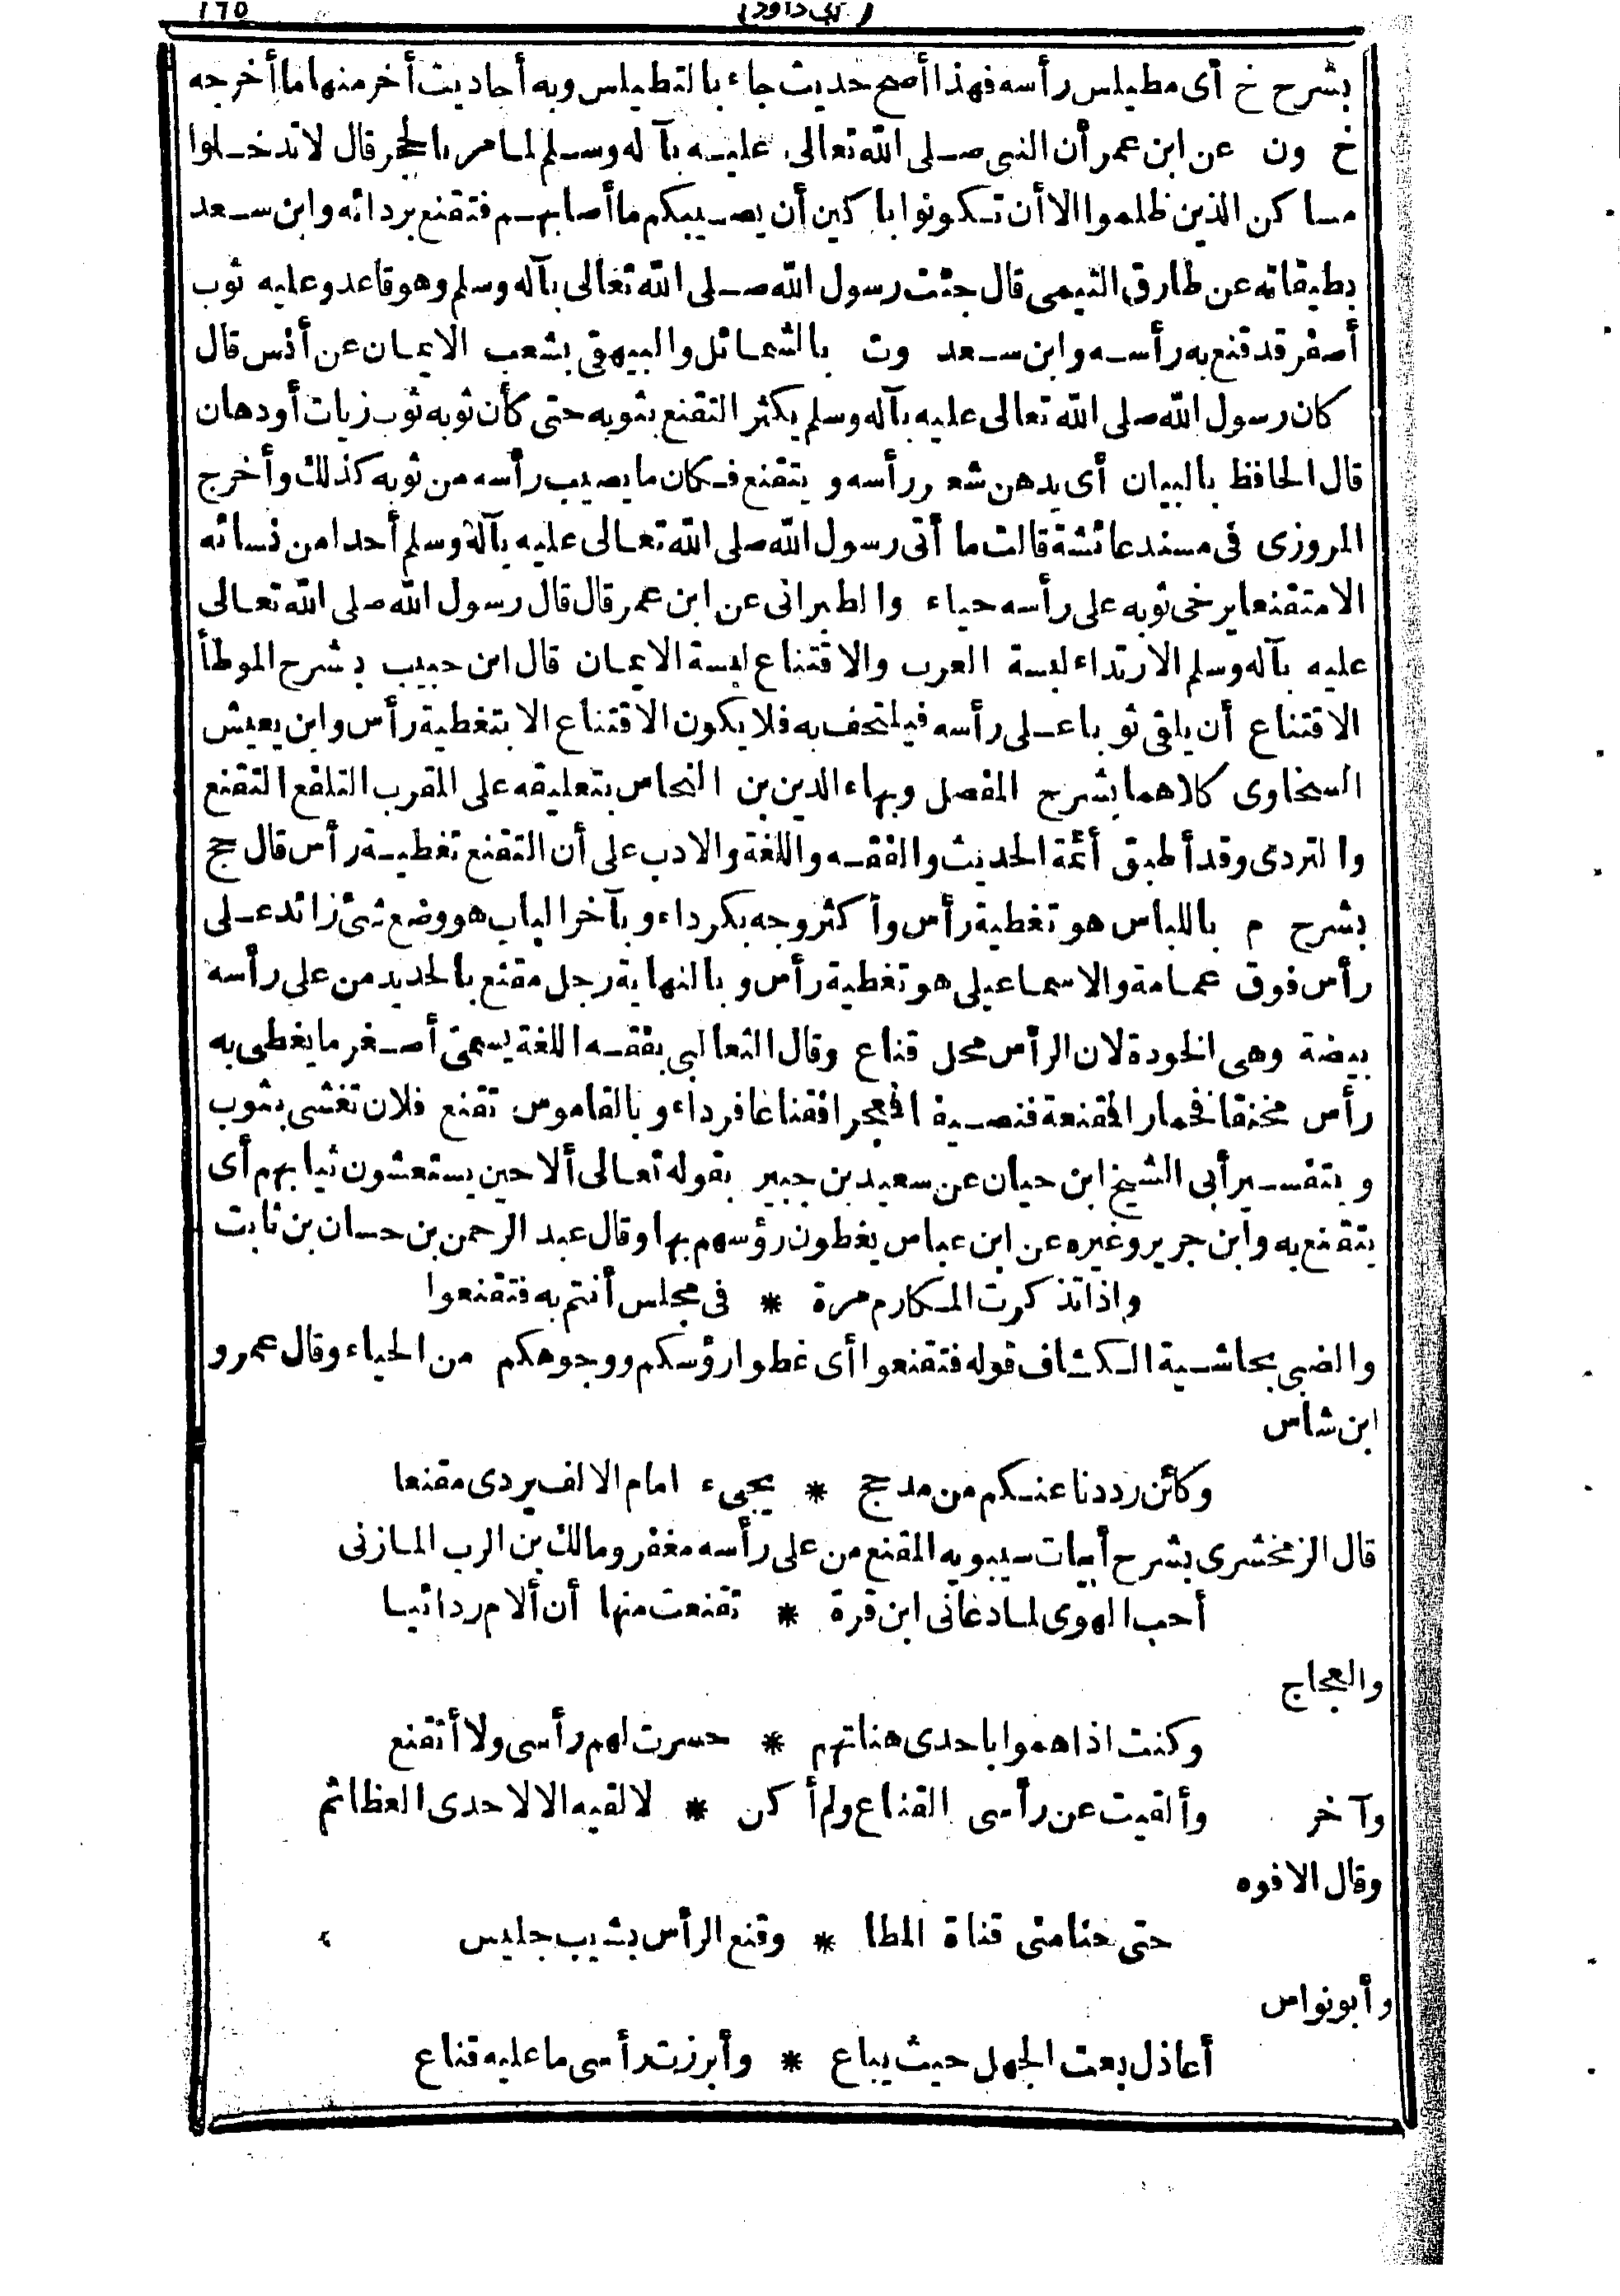 (أبي داود) ١٦٥
بشرح خ أى مطيلس رأسه فهذا أصح حديث جاء بالتطيلس وبه أحاديث أخر منها ما أخرجه
خ ون عن ابن عمر أن النبى صلى الله تعالى عليه بآله وسلم لما مر بالحجر قال لا تدخلوا
مساكن الذين ظلموا الا أن تكونوا باكين أن يصيبكم ما أصابهم فتقنع بردائه وابن سعد
بطبقاته عن طارق التيمى قال جئت رسول الله صلى الله تعالى بآله وسلم وهو قاعد وعليه ثوب
أصفر قد قنع به رأسه وابن سعد وت بالشمائل والبيهقى بشعب الايمان عن أنس قال
كان رسول الله صلى الله تعالى عليه بآله وسلم يكثر التقنع بثوبه حتى كأن ثوبه ثوب زيات أو دهان
قال الحافظ بالبيان أى يدهن شعر رأسه ويتقنع فكان ما يصيب رأسه من ثوبه كذلك وأخرج
المروزى فى مسند عائشة قالت ما أتى رسول الله صلى الله تعالى عليه بآله وسلم أحدا من نسائه
الا متقنعا يرخى ثوبه على رأسه حياء والطبرانى عن ابن عمر قال قال رسول الله صلى الله تعالى
عليه بآله وسلم الارتداء لبسة العرب والاقتناع لبسة الايمان قال ابن حبيب بشرح الموطأ
الاقتناع أن يلقى ثوبا على رأسه فيلتحف به فلا يكون الاقتناع الا بتغطية رأس وابن يعيش
السخاوى كلاهما بشرح المفصل وبهاء الدين بن النحاس بتعليقه على المقرب التلفع التقنع
والتردى وقد أطبق أئمة الحديث والفقه واللغة والادب على أن التقنع تغطية رأس قال حج
بشرح م باللباس هو تغطية رأس وأكثر وجه بكرداء وبآخر الباب هو وضع شئ زائد على
رأس فوق عمامة والاسماعيلى هو تغطية رأس وبالنهاية رجل مقنع بالحديد من على رأسه
بيضة وهى الخودة لان الرأس محل قناع وقال الثعالبى بفقه اللغة يسمى أصغر ما يغطى به
رأس مخنقا فخمار المقنعة فنصيفا فمعجرا فقناعا فرداء وبالقاموس تقنع فلان تغشى بثوب
وبتفسير أبى الشيخ ابن حيان عن سعيد بن جبير بقوله تعالى ألا حين يستغشون ثيابهم أى
يتقنع به وابن جرير وغيره عن ابن عباس يغطون رؤسهم بها وقال عبد الرحمن بن حسان بن ثابت
واذا تذكرت المكارم مرة * فى مجلس أنتم به فتقنعوا
والضبى بحاشية الكشاف قوله فتقنعوا أى غطوا رؤسكم ووجوهكم من الحياء وقال عمرو
ابن شاس
وكائن رددنا عنكم من مدجج * يجىء امام الالف يردى مقنعا
قال الزمخشرى بشرح أبيات سيبويه المقنع من على رأسه مغفر ومالك بن الرب المازنى
أحب الهوى لما دعانى ابن قرة * تقنعت منها أن ألام ردائيا
والعجاج
وكنت اذا هموا باحدى هناتهم * حسرت لهم رأسى ولا أتقنع
وآخر وألقيت عن رأسى القناع ولم أكن * لالقيه الا لاحدى العظائم
وقال الافوه
حتى حنا متى قناة المطا * وقنع الرأس بشيب جليس
وأبو نواس
أعاذل بعت الجهل حيث يباع * وأبرزت رأسى ما عليه قناع